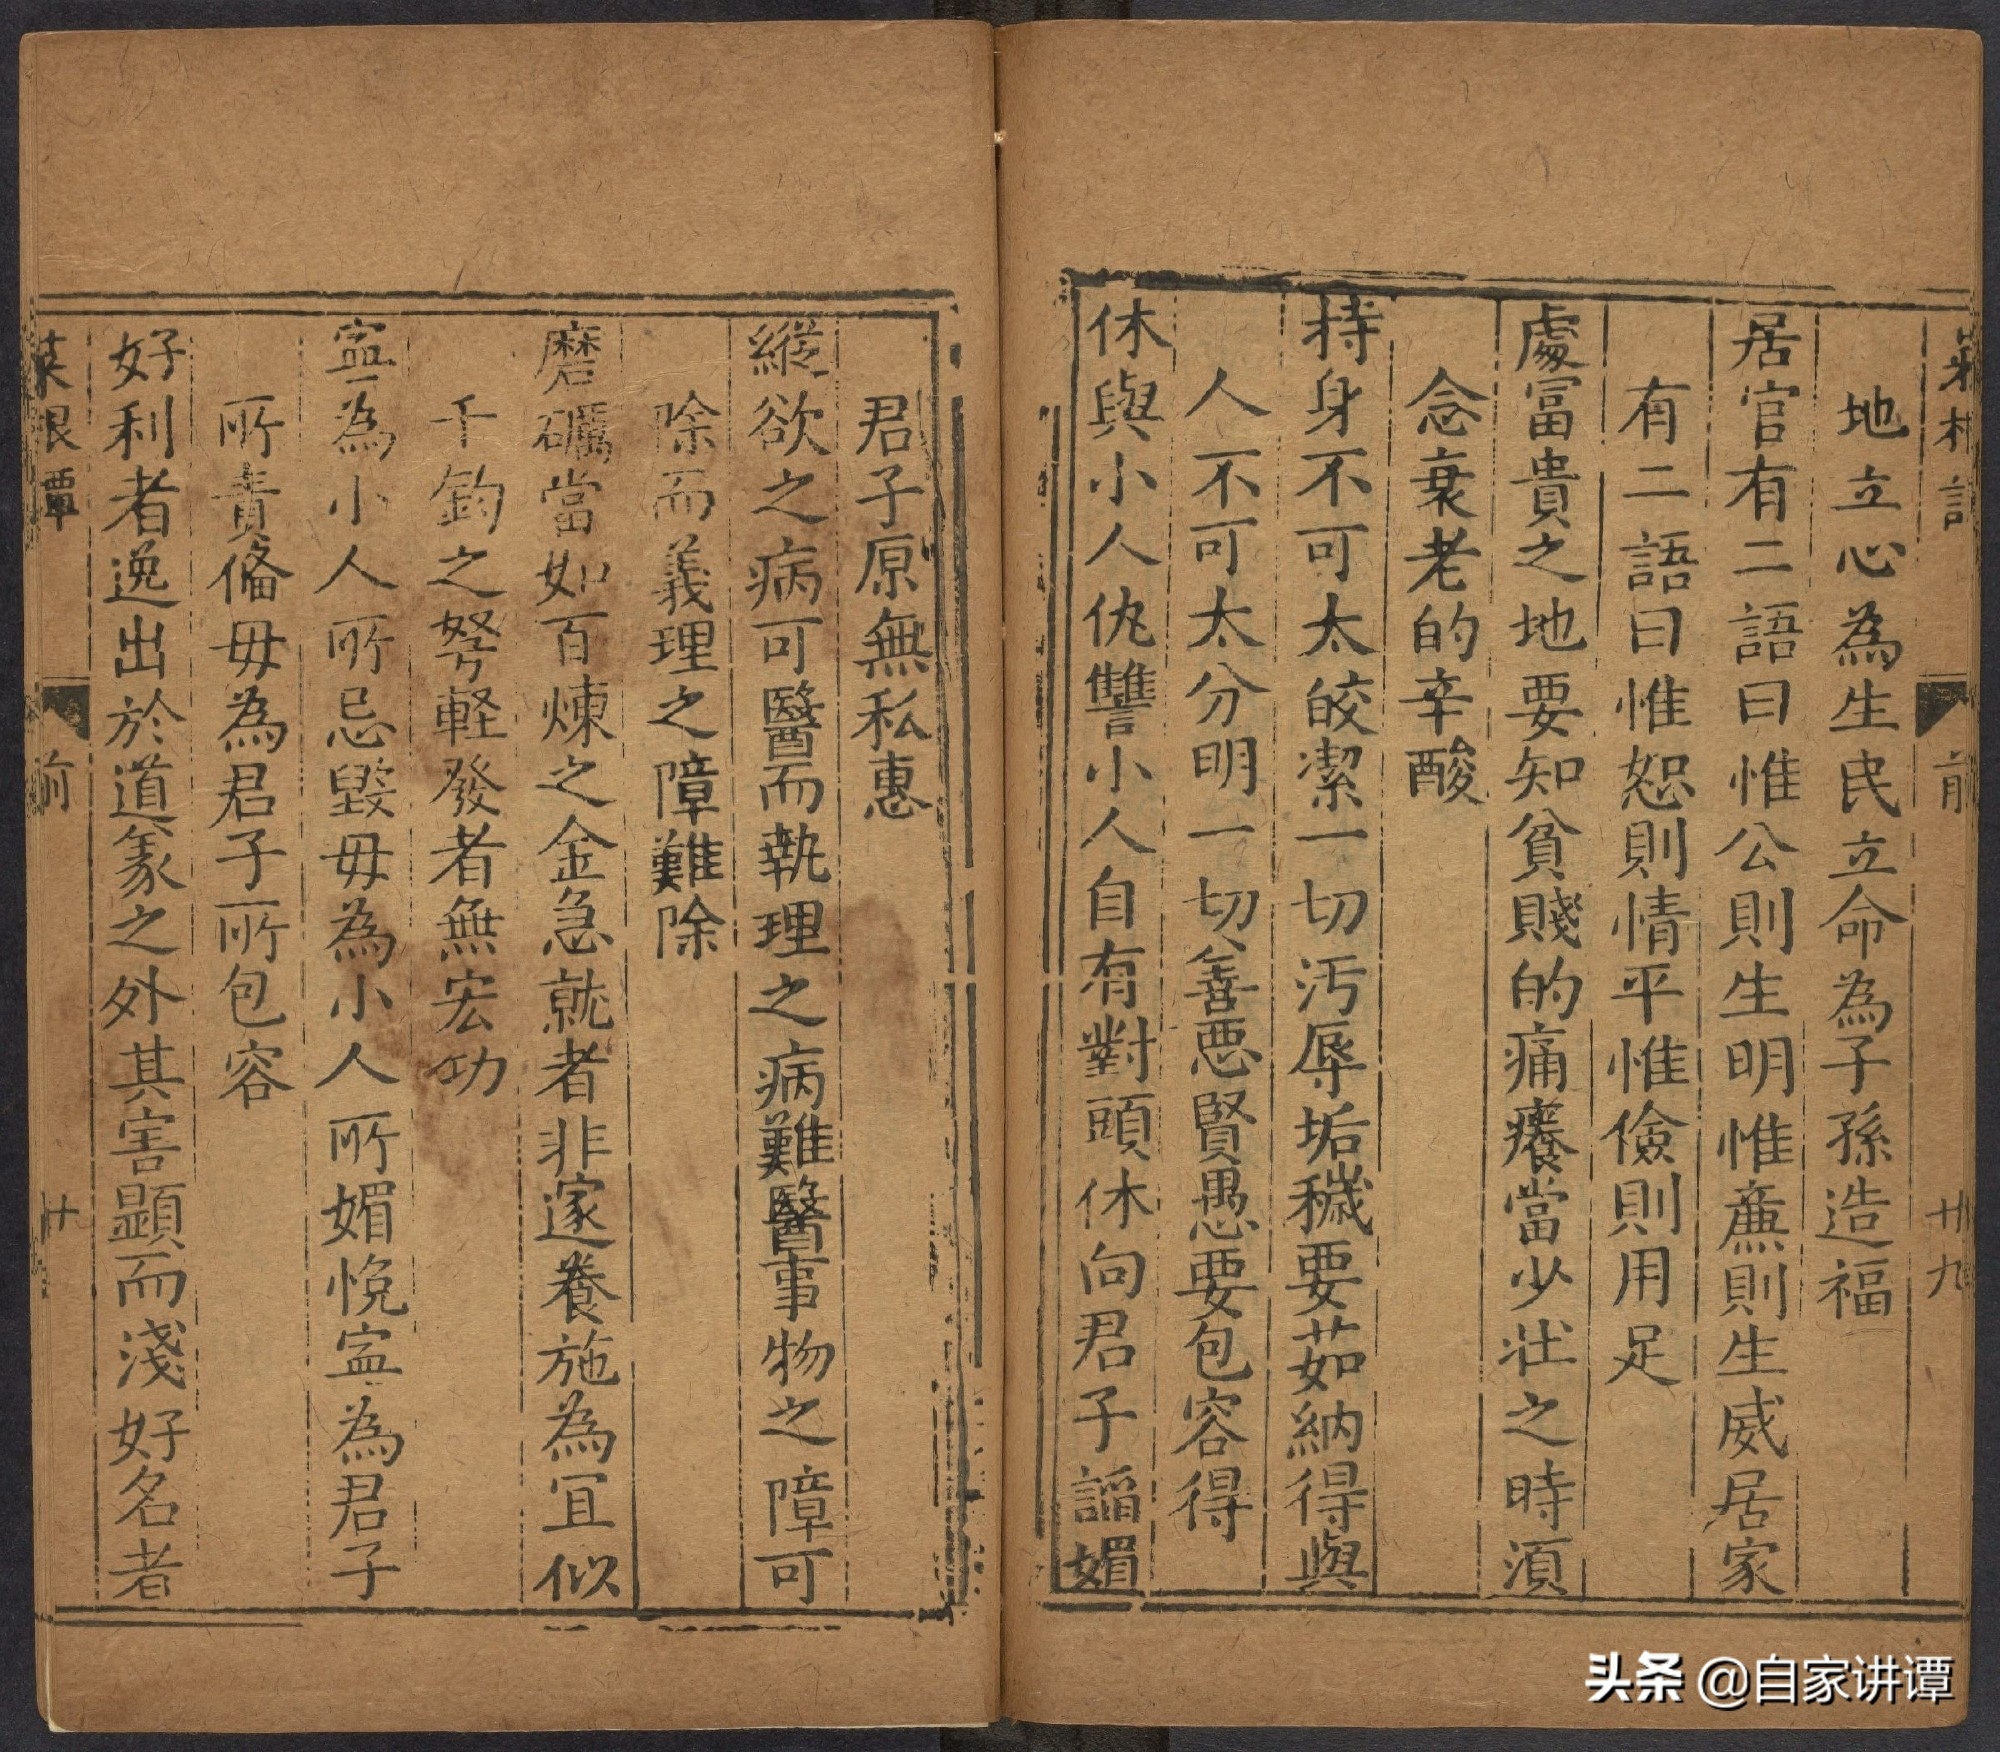 前
廿九
地立心為生民立命為子孫造福
居官有二語曰惟公則生明惟亷則生威居家
有二語曰惟恕則情平惟儉則用足
處富貴之地要知貧賤的痛癢當少壯之時湏
念衰老的辛酸
持身不可太皎潔一切汚辱垢穢要茹納得與
人不可太分明一切善悪賢愚要包容得
休與小人仇讐小人自有對頭休向君子諂媚
君子原無私惠
縱欲之病可醫而執理之病難醫事物之障可
除而義理之障難除
磨礪當如百煉之金急就者非邃養施為宜似
千鈞之弩軽發者無宏功
寍為小人所忌毀毋為小人所媚悅寍為君子
所責俻毋為君子所包容
好利者逸出於道義之外其害顯而淺好名者
菜根譚
前
廿
头条 @自家讲谭